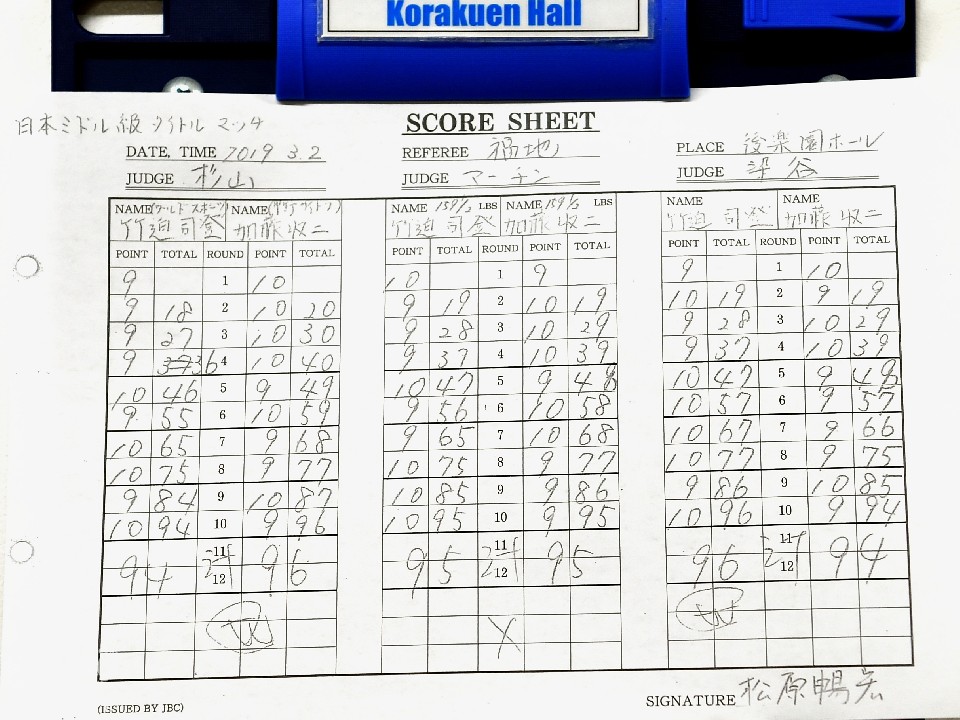 Korakuen Hall
日本ミドル級タイトルマッチ
SCORE SHEET
DATE, TIME 2019 3.2 REFEREE 福地 PLACE 後楽園ホール
JUDGE 杉山 JUDGE マーチン JUDGE 染谷
NAME (ワールドスポーツ) NAME NAME 159½ LBS NAME 159½ LBS NAME NAME
竹迫司登 加藤収二 竹迫司登 加藤収二 竹迫司登 加藤収二
POINT TOTAL ROUND POINT TOTAL POINT TOTAL ROUND POINT TOTAL POINT TOTAL ROUND POINT TOTAL
9 1 10 10 1 9 9 1 10
9 18 2 10 20 9 19 2 10 19 10 19 2 9 19
9 27 3 10 30 9 28 3 10 29 9 28 3 10 29
9 36 4 10 40 9 37 4 10 39 9 37 4 10 39
10 46 5 9 49 10 47 5 9 48 10 47 5 9 48
9 55 6 10 59 9 56 6 10 58 10 57 6 9 57
10 65 7 9 68 9 65 7 10 68 10 67 7 9 66
10 75 8 9 77 10 75 8 9 77 10 77 8 9 75
9 84 9 10 87 10 85 9 9 86 9 86 9 10 85
10 94 10 9 96 10 95 10 9 95 10 96 10 9 94
11 11 11
94 計 96 95 計 95 96 計 94
12 12 12
W X W
(ISSUED BY JBC) SIGNATURE 松原暢宏